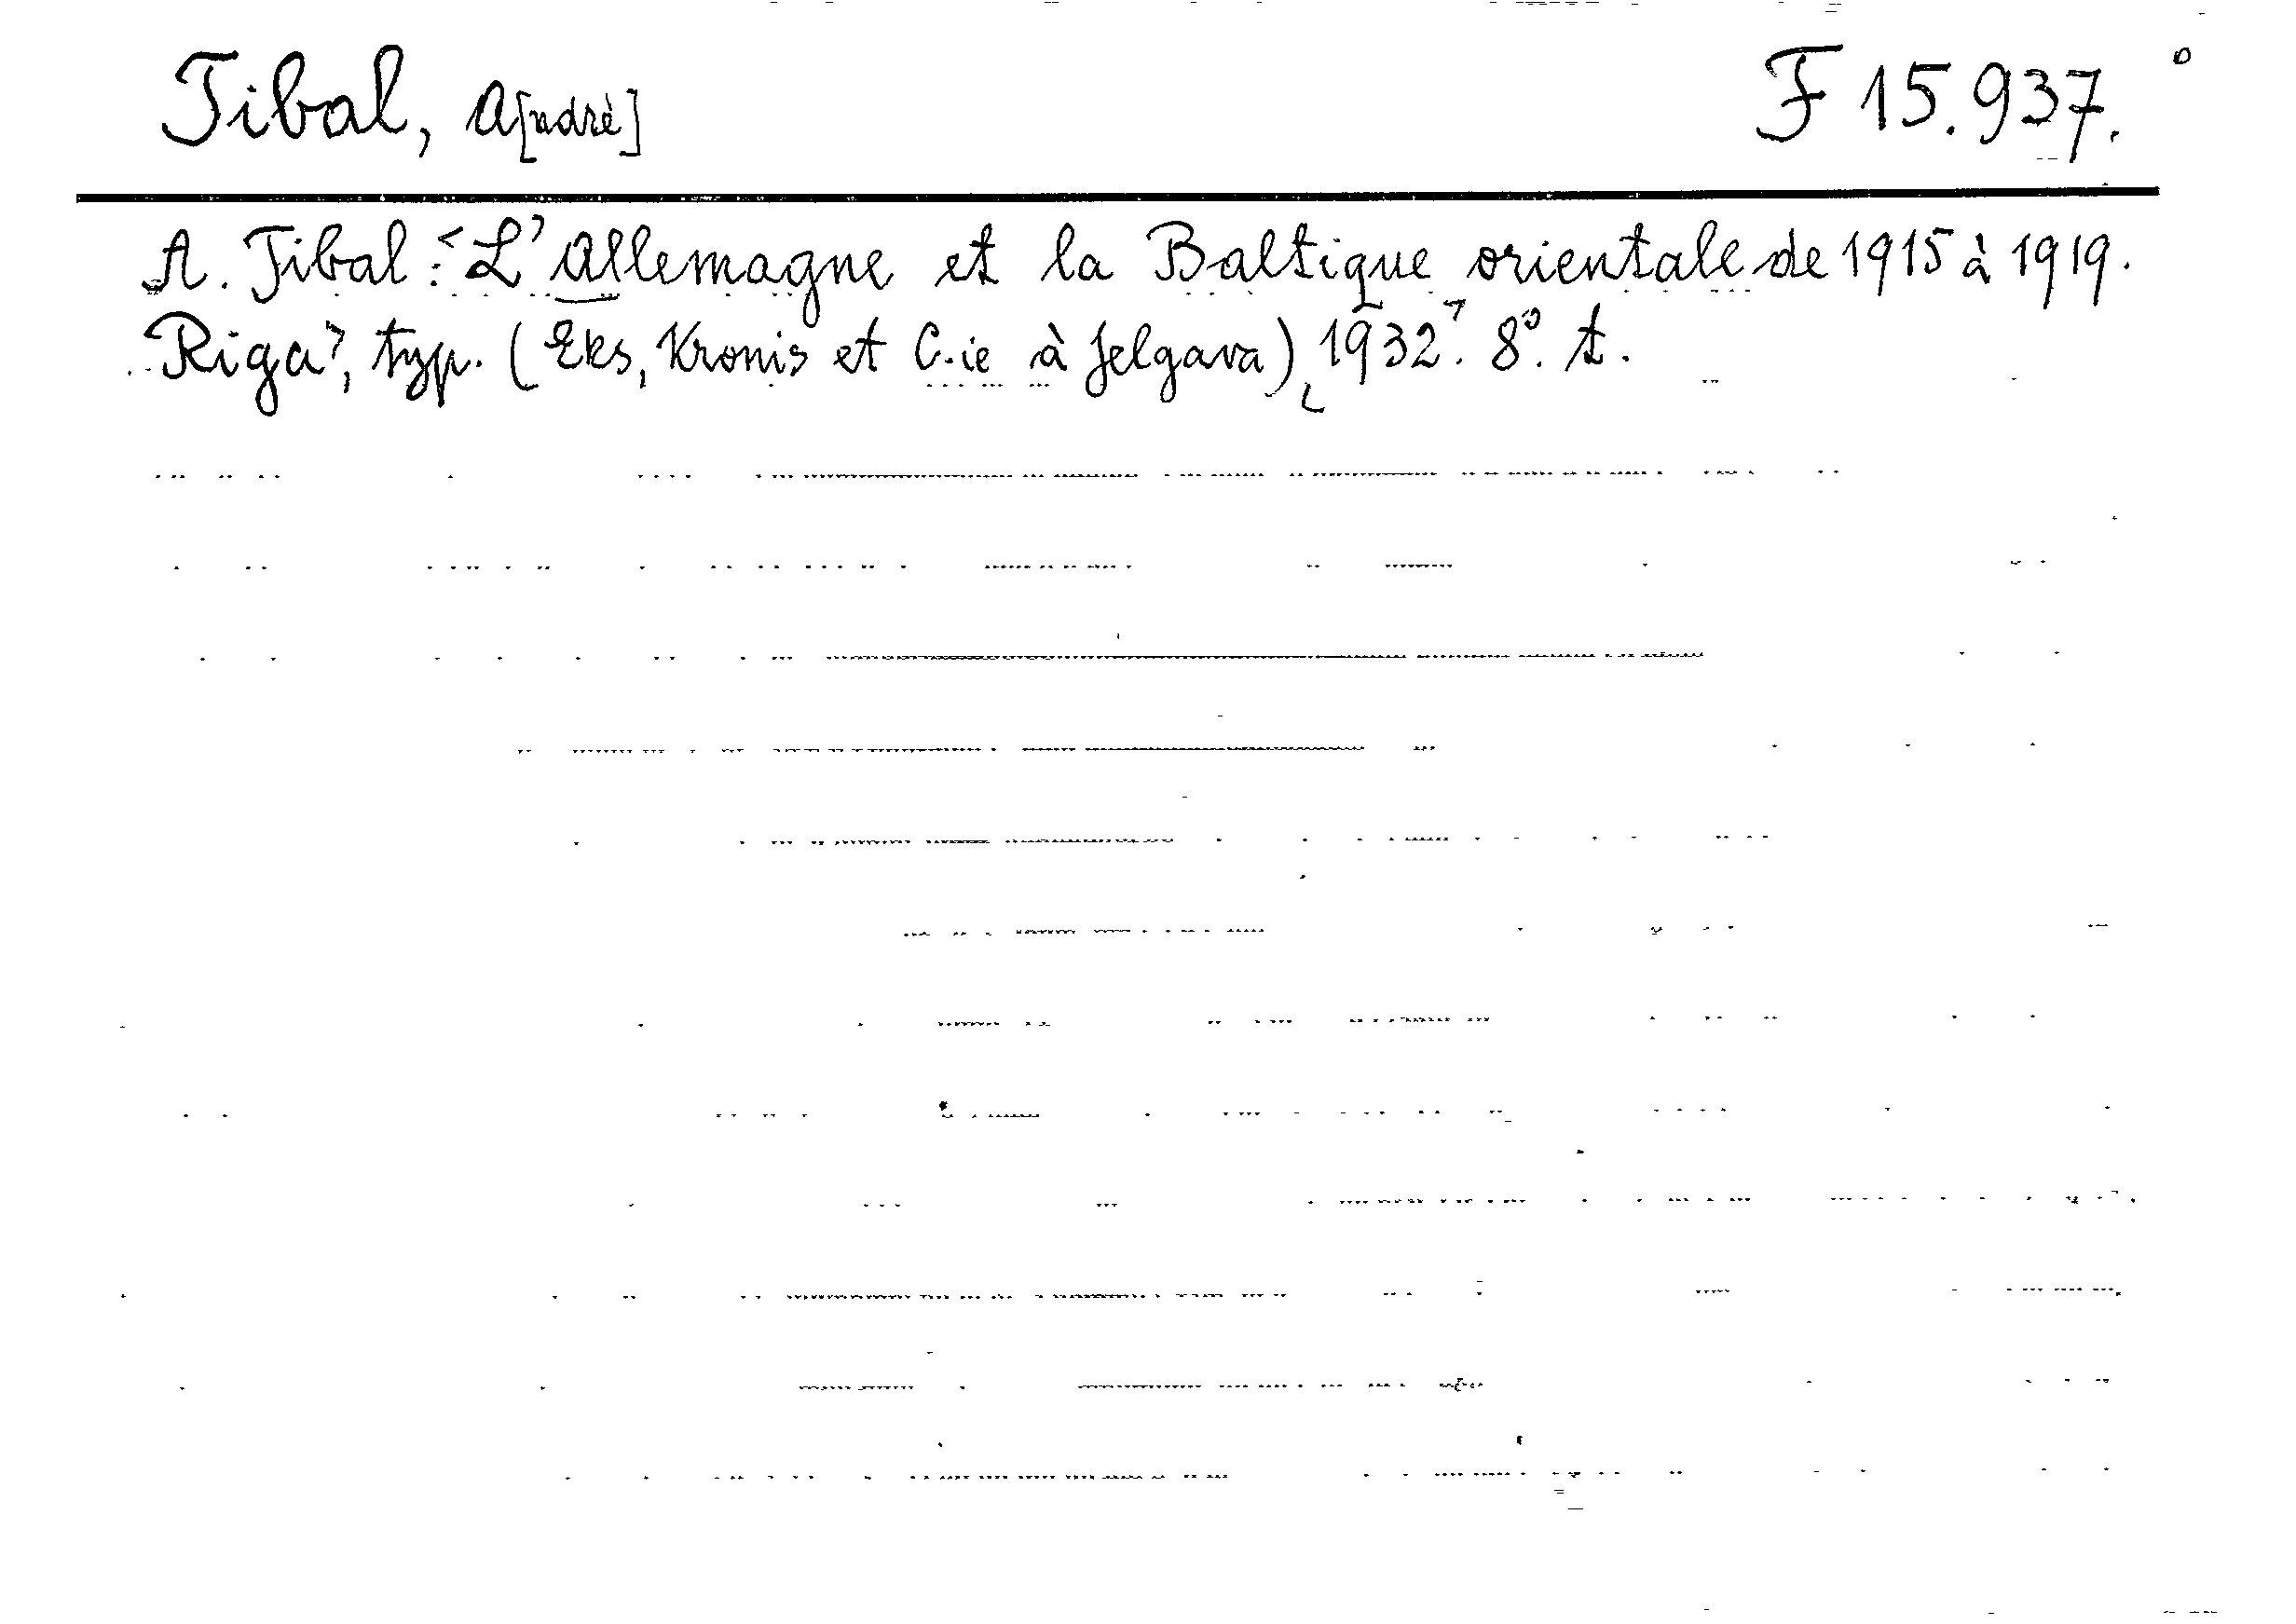 Tibal, A[ndré]
F 15.937.
A. Tibal: <L'Allemagne et la Baltique orientale de 1915 à 1919.
Riga>, typ. (Eks, Kronis et C.ie à Jelgava), 1932. 8°. t.